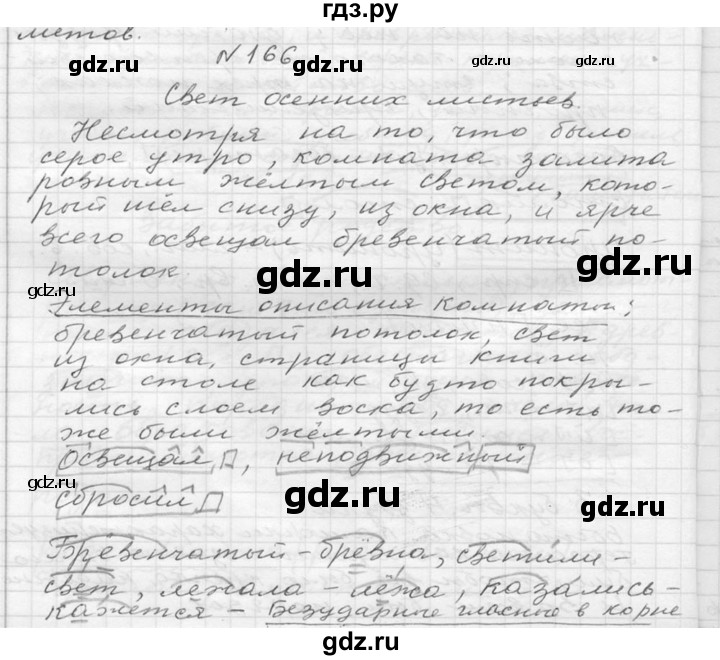 гдз.ру
метов.
N 166
gdz.ru gdz.ru gdz.ru
Свет осенних листьев.
Несмотря на то, что было
серое утро, комната залита
ровным жёлтым светом, кото-
рый шёл снизу, из окна, и ярче
всего освещал бревенчатый по-
толок.
gdz.ru gdz.ru
gdz.ru gdz.ru
Элементы описания комнаты:
бревенчатый потолок, свет
из окна, страницы книги
на столе как будто покры-
лись слоем воска, то есть то-
же были жёлтыми.
gdz.ru
Освещал, неподвижный
сбросил
gdz.ru gdz.ru
gdz.ru
Бревенчатый - брёвна, светили -
свет, лежала - лёжа, казались -
кажется - Безударные гласные в корне
gdz.ru gdz.ru gdz.ru
гдз.ру